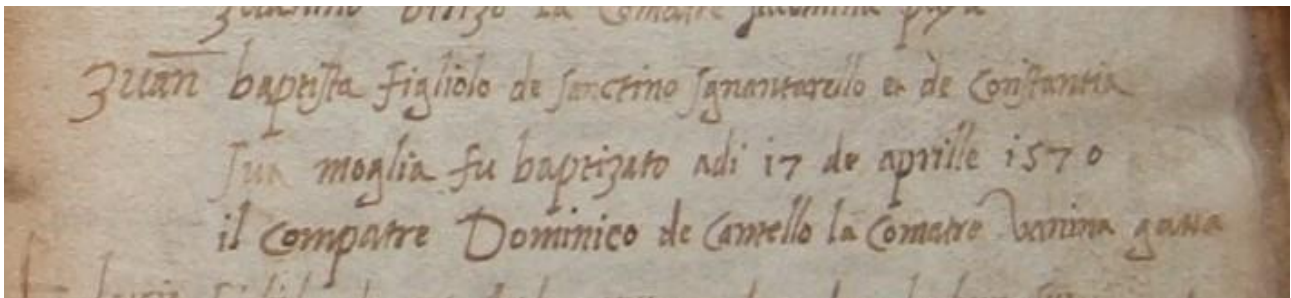 la Comatre Jacomina
Zuan baptista figliolo de sanctino sgnantarello et de Constantia
sua moglia fu baptizato adi 17 de aprille 1570
il Compatre Dominico de Camello la Comatre Vanina gatta